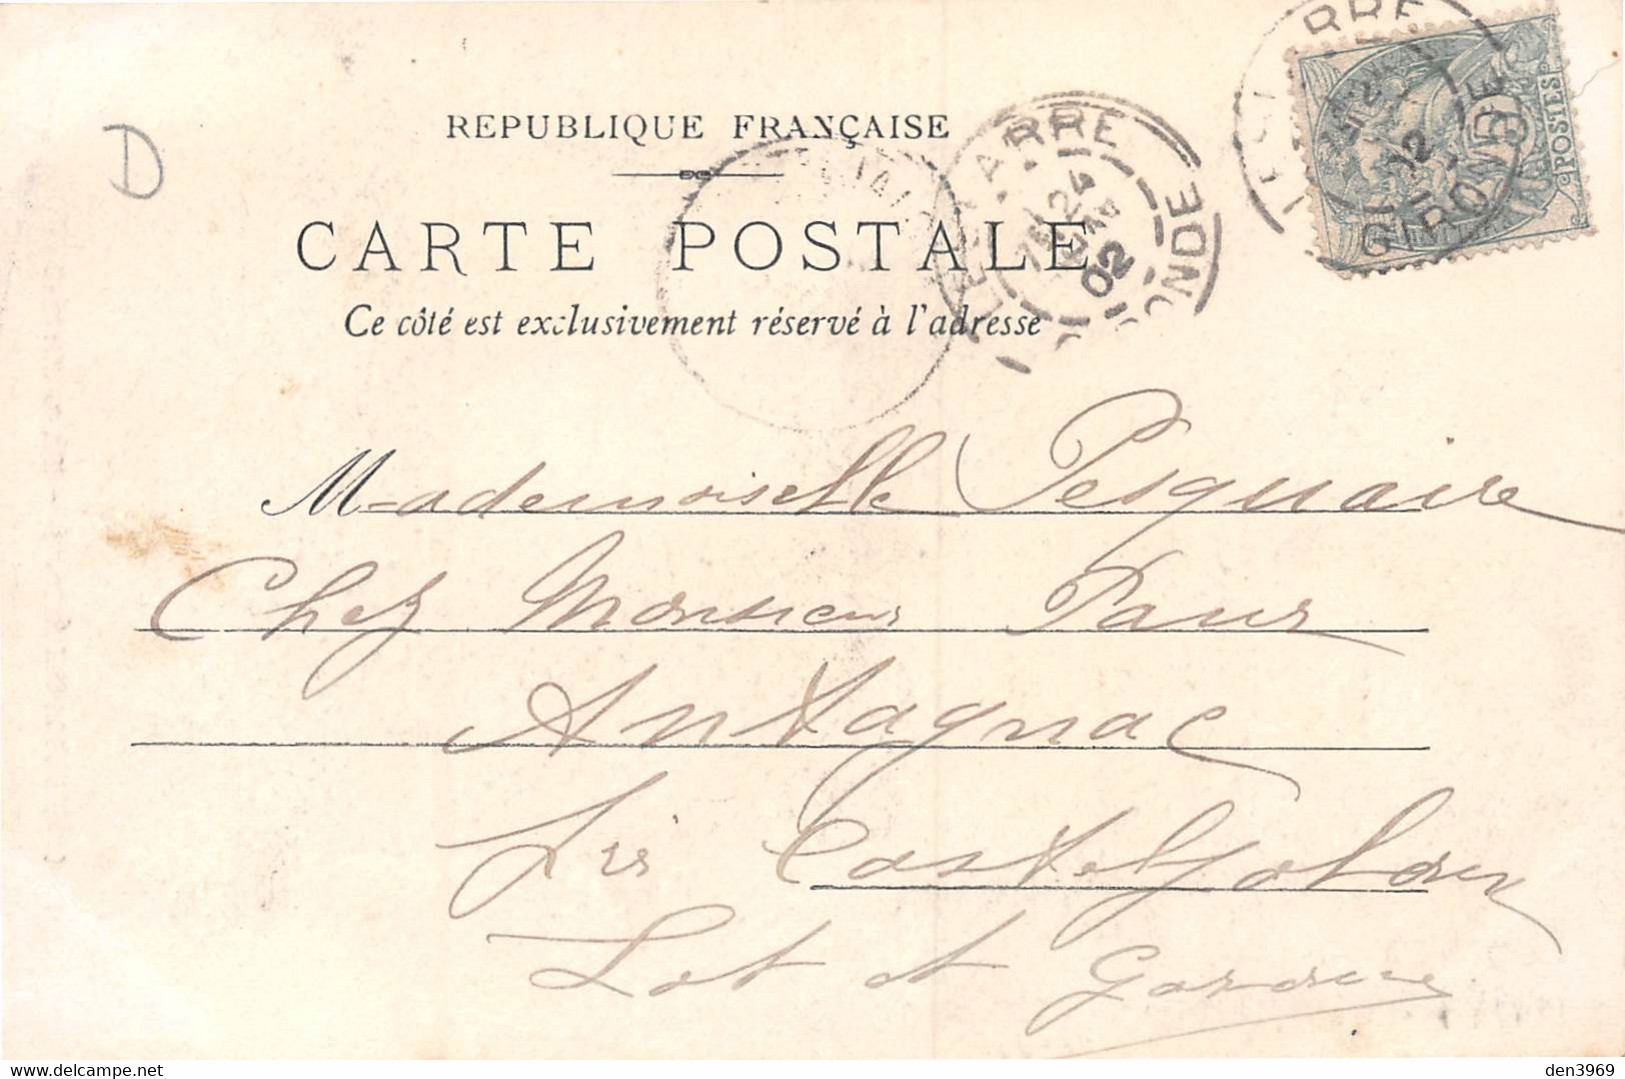 D
REPUBLIQUE FRANÇAISE
CARTE POSTALE
Ce côté est exclusivement réservé à l'adresse
02
GIRONDE
POSTES
Mademoiselle Pesquaire
Chez Monsieur Paur
Antagnac
Par Casteljaloux
Lot et Garonne
den3969